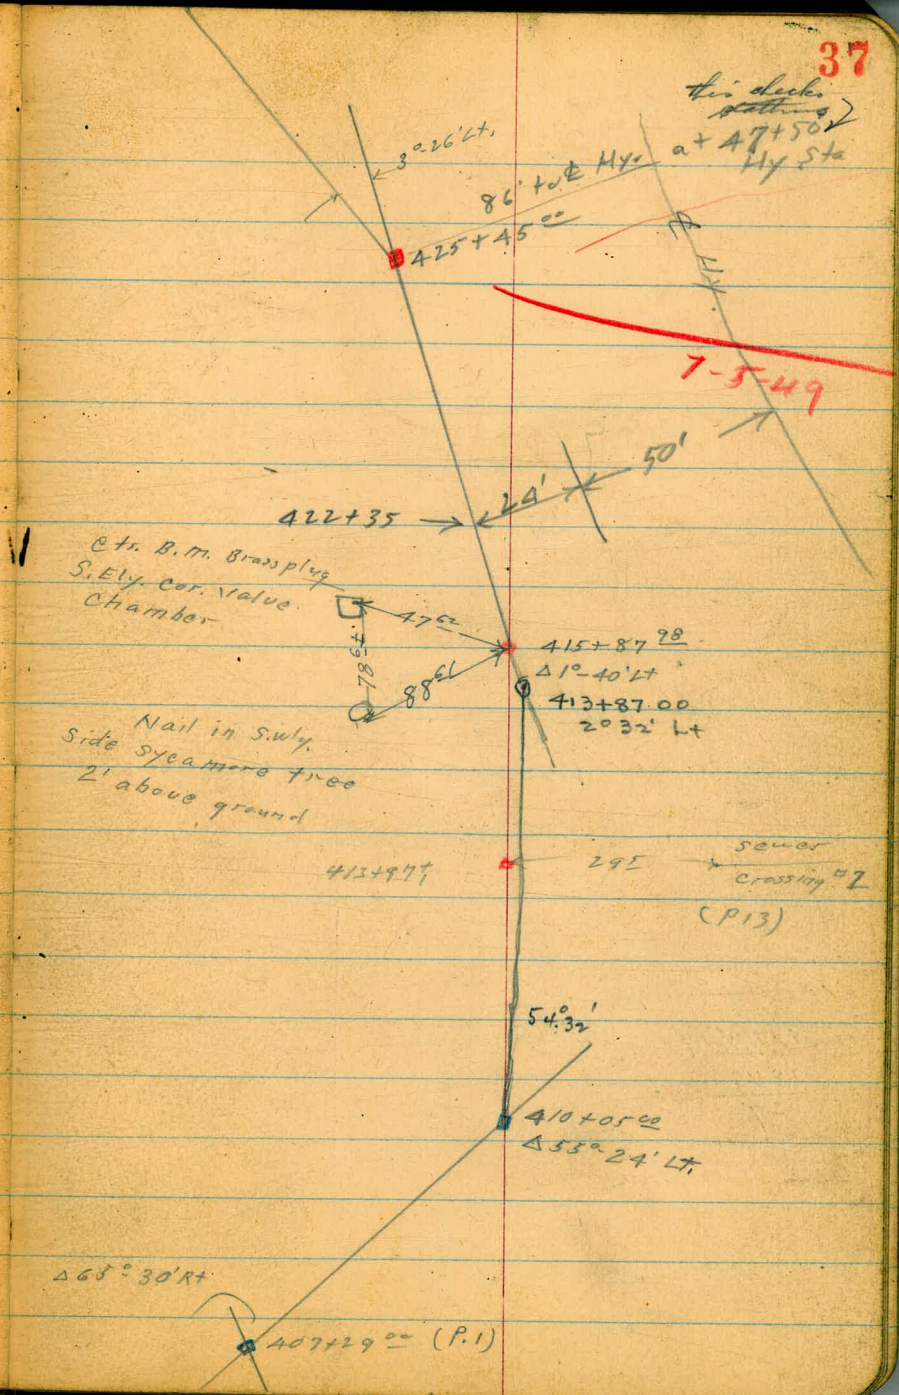 37
this checks
at 47+50
Hy Sta
3°-26' Lt.
86' to ℄ Hy.
425+45 00
℄ Hy.
7-5-49
50'
24'
422+35
Ctr. B.M. Brass plug
S.Ely. Cor. Valve
Chamber
47 62
415+87 98
Δ 1°-40' Lt
78 67
88 61
413+87.00
2° 32' Lt
Nail in S.Wly.
Side Sycamore tree
2' above ground
413+97±
29 5
Sewer
Crossing #2
(P.13)
54°32'
410+05 00
Δ 55° 24' Lt.
Δ 65° 30' Rt
407+29 00 (P.1)